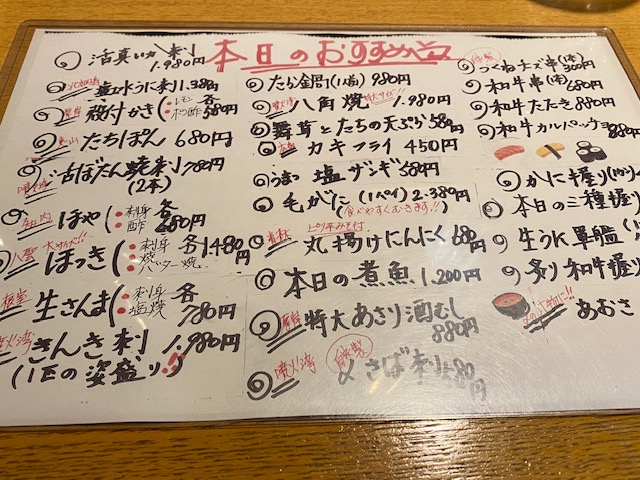 本日のおすすめ
活真いか刺 1.980円
塩水うに刺 1.380
殻付かき(・レモン ・ポン酢 各580円
たちぽん 680円
活ぼたん焼刺 780円
(2本)
ほや(・刺身 ・酢 各680円
大サイズ!!
ほっき(・刺身 ・焼 ・バター焼 各1.480円
根室 生さんま(・刺身 ・塩焼 各780円
噴火湾 きんき刺 1.980円
(1匹の姿盛り)
たら鍋(1人前) 980円
八角焼 1.980円
舞茸とたちの天ぷら 580円
カキフライ 450円
うまっ 塩ザンギ 580円
毛がに(1パイ) 2.380円
(食べやすくむきます!!)
ピリ辛みそ付
丸揚げにんにく 680円
本日の煮魚 1.200円
特大あさり酒むし
880円
噴火湾 自家製 〆さば刺 480円
つくねチーズ串(1本) 300円
和牛串(1本) 680円
和牛たたき 880円
和牛カルパッチョ 880円
かに握り
本日の三種握り
生うに軍艦
炙り和牛握り
あおさ